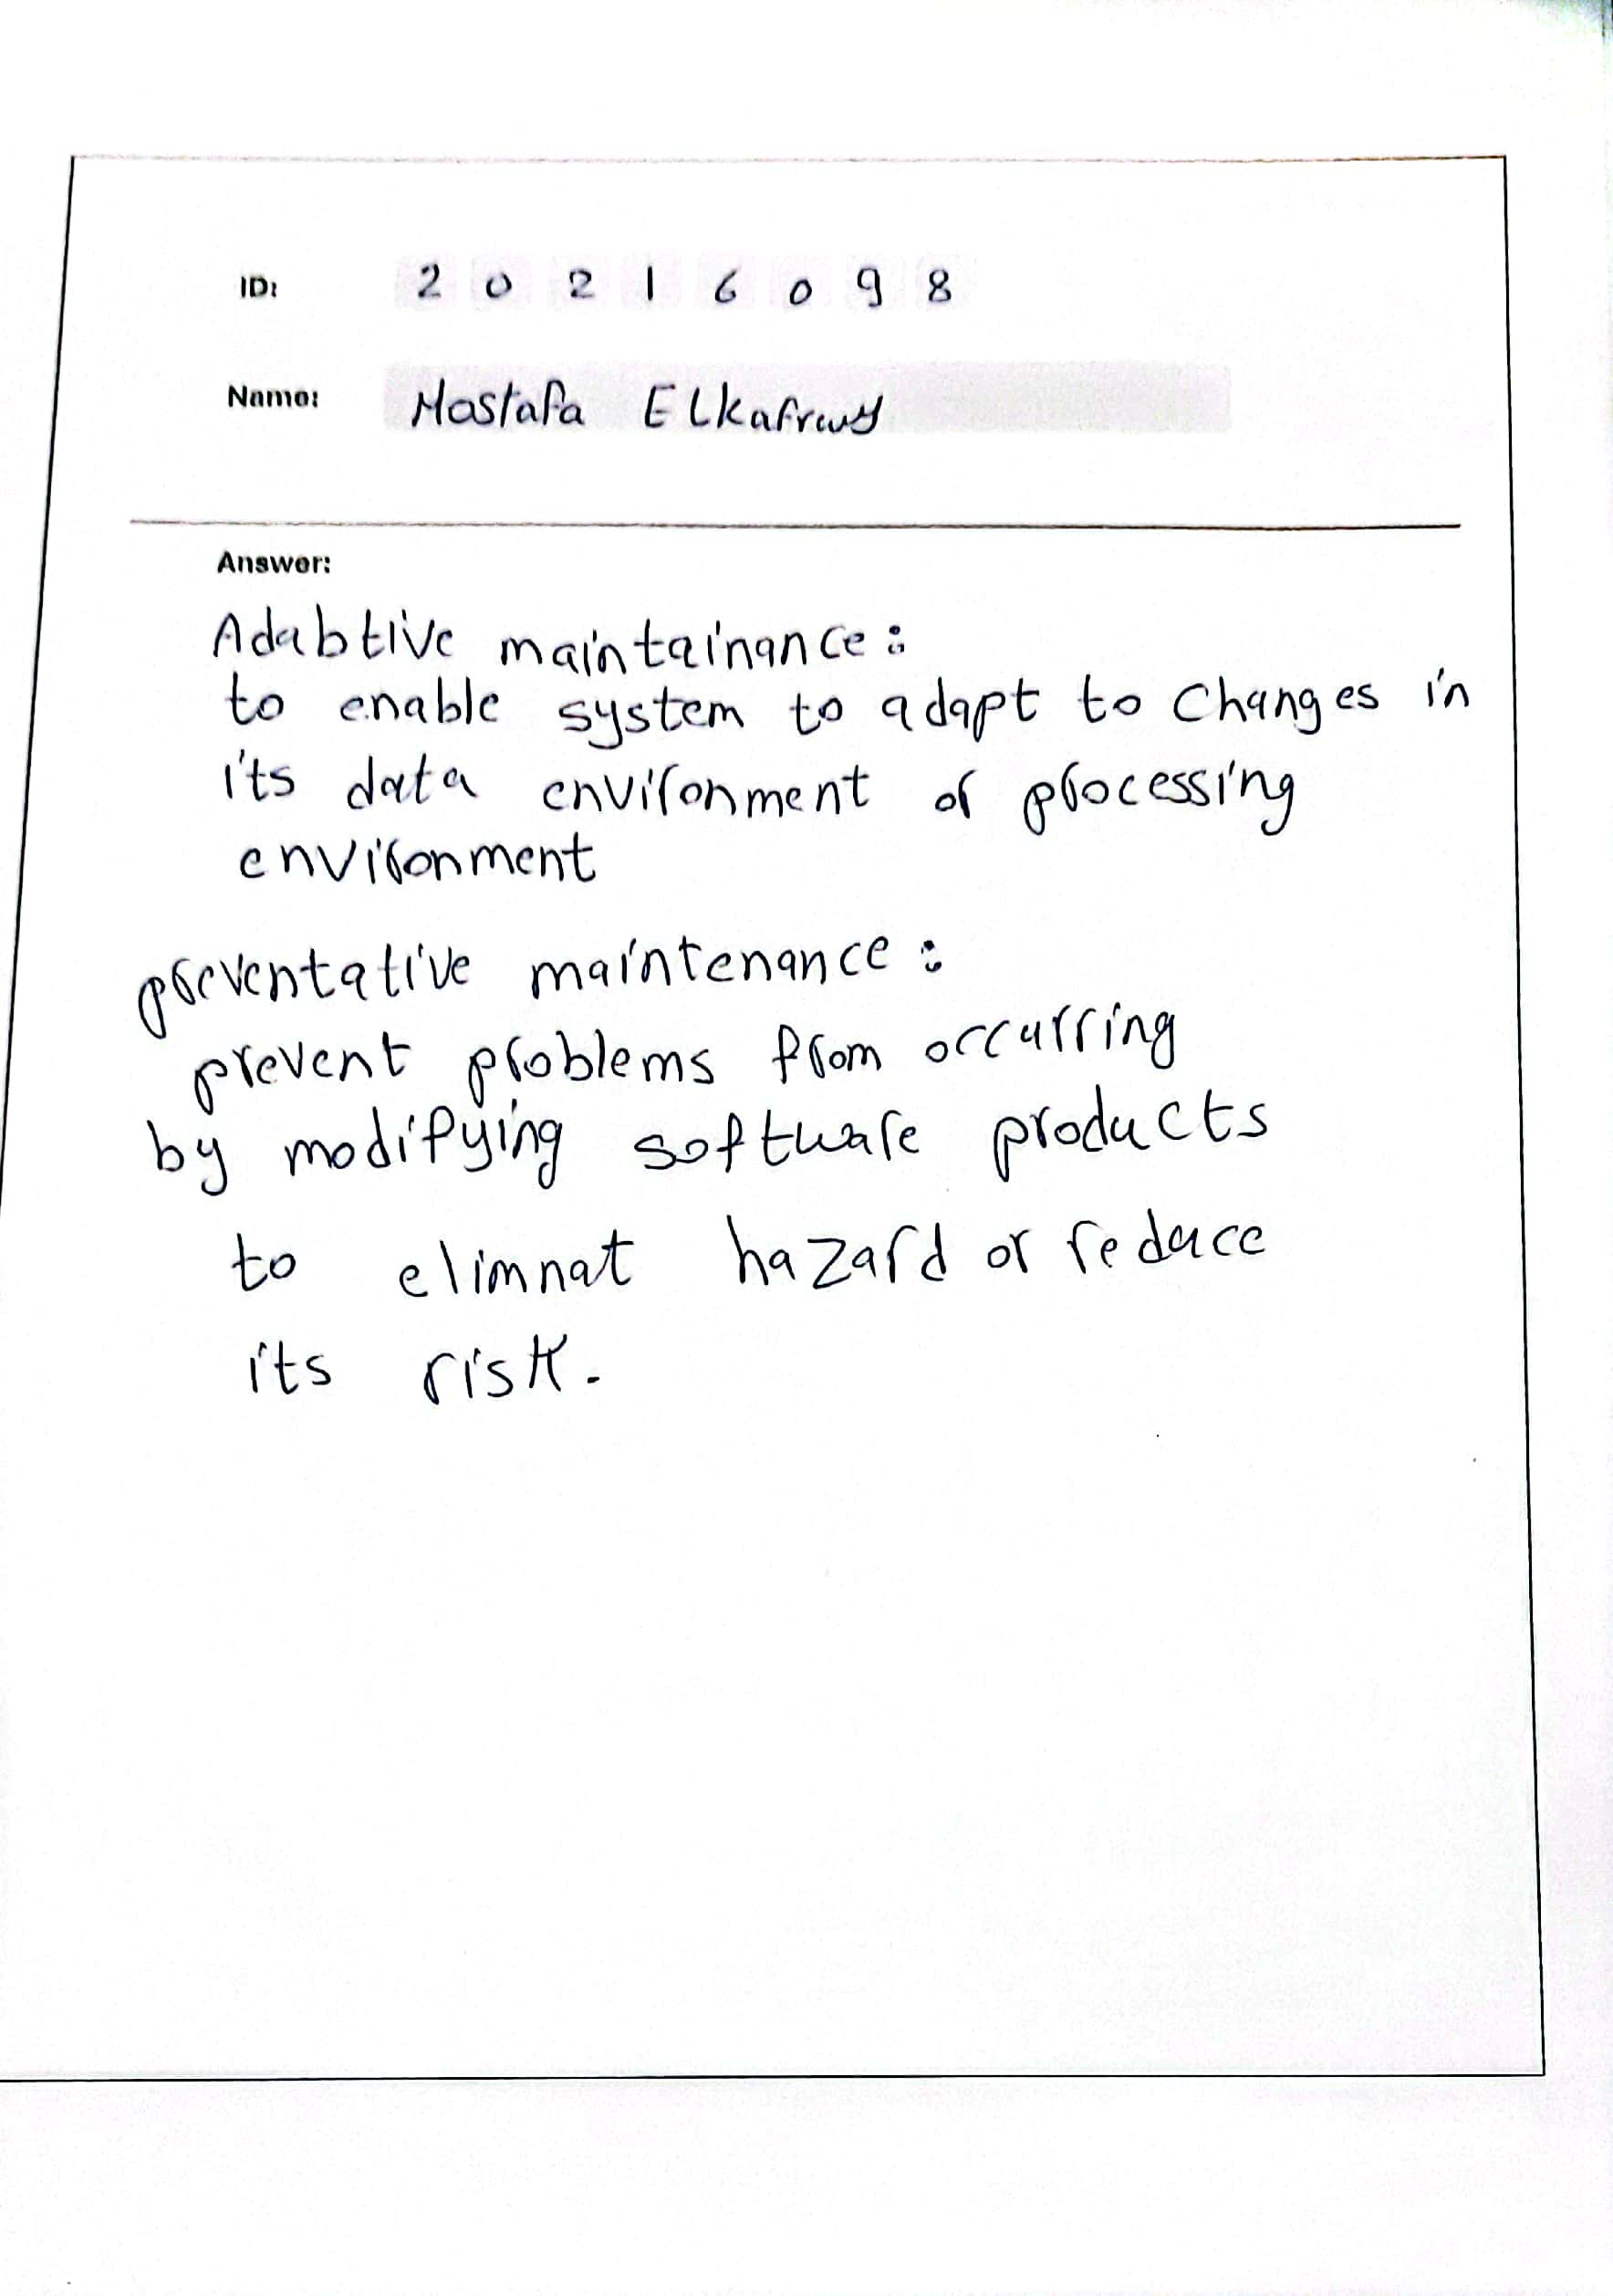 ID: 2 0 2 1 6 0 9 8
Name: Mostafa ELkafrwy
Answer:
Adabtive maintainance:
to enable system to adapt to changes in
its data environment or processing
environment
preventative maintenance:
prevent problems from occurring
by modifying software products
to elimnat hazard or reduce
its risk.